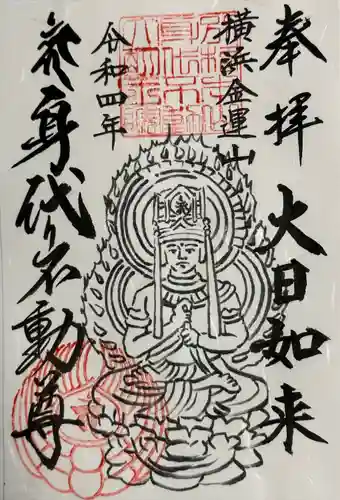 奉拝
大日如来
横浜金運山
令和四年
身代り不動尊